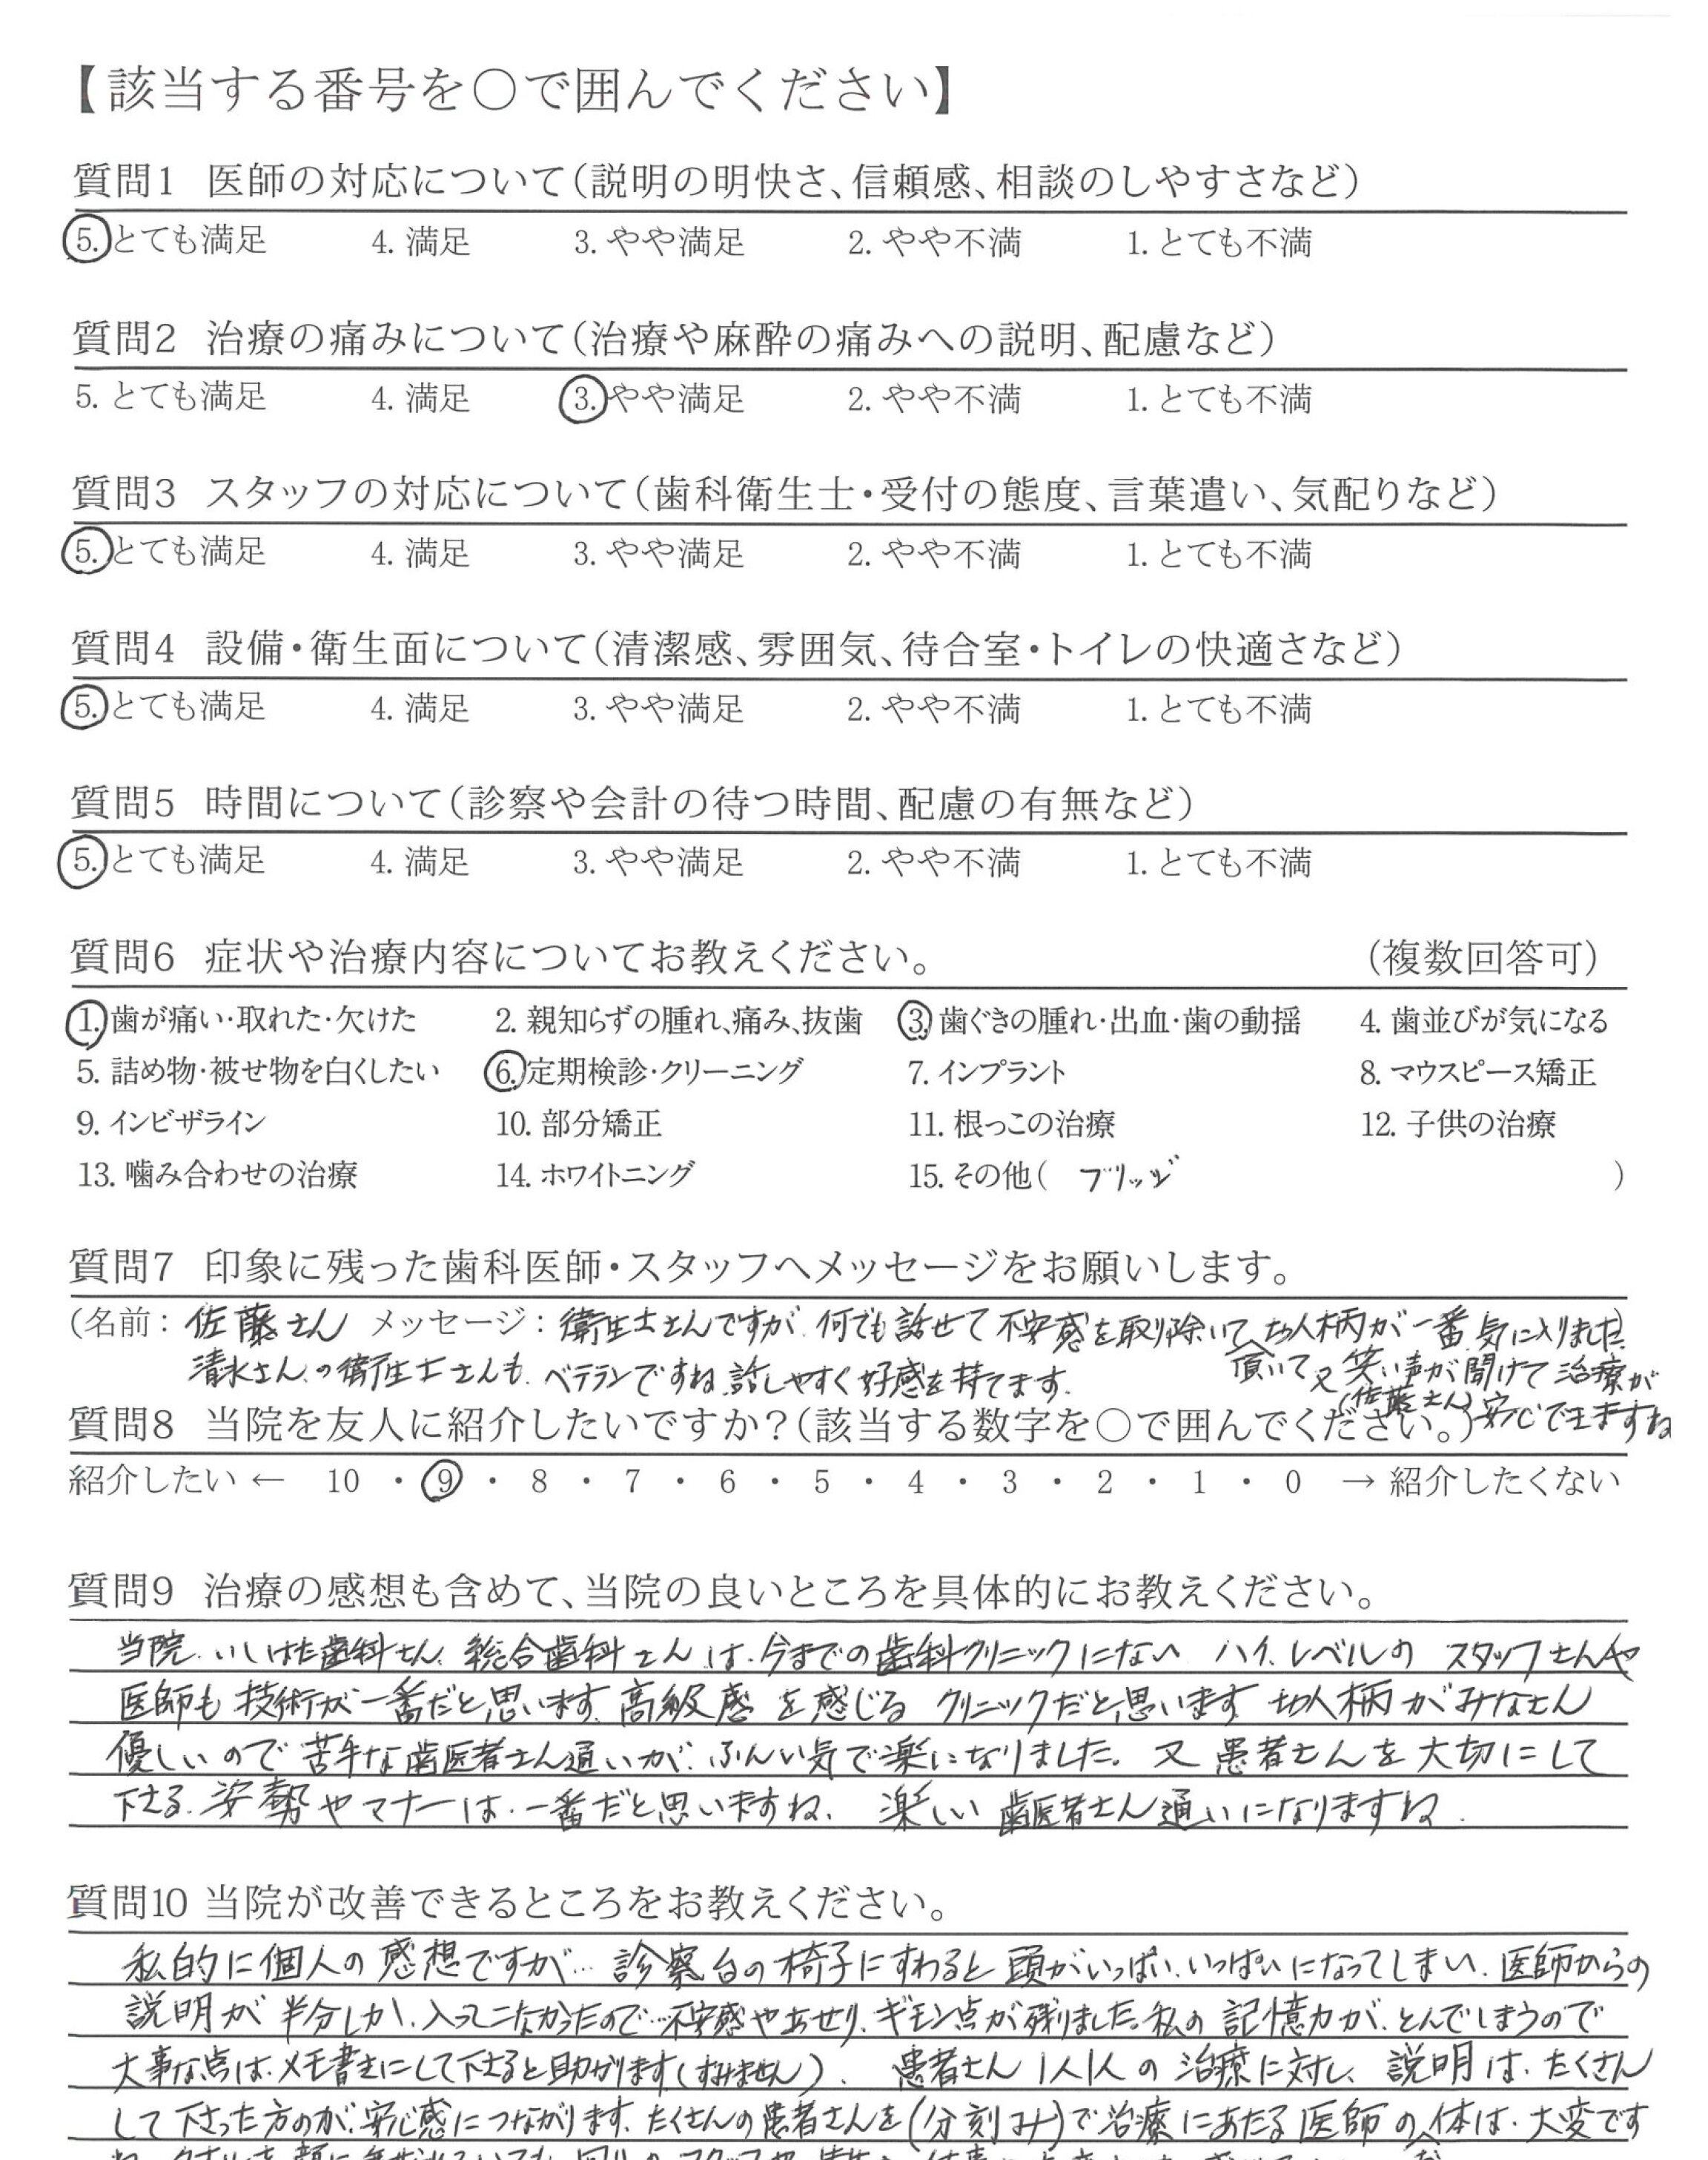 【該当する番号を〇で囲んでください】
質問1 医師の対応について（説明の明快さ、信頼感、相談のしやすさなど）
5. とても満足 4. 満足 3. やや満足 2. やや不満 1. とても不満
質問2 治療の痛みについて（治療や麻酔の痛みへの説明、配慮など）
5. とても満足 4. 満足 3. やや満足 2. やや不満 1. とても不満
質問3 スタッフの対応について（歯科衛生士・受付の態度、言葉遣い、気配りなど）
5. とても満足 4. 満足 3. やや満足 2. やや不満 1. とても不満
質問4 設備・衛生面について（清潔感、雰囲気、待合室・トイレの快適さなど）
5. とても満足 4. 満足 3. やや満足 2. やや不満 1. とても不満
質問5 時間について（診察や会計の待つ時間、配慮の有無など）
5. とても満足 4. 満足 3. やや満足 2. やや不満 1. とても不満
質問6 症状や治療内容についてお教えください。 （複数回答可）
1. 歯が痛い・取れた・欠けた 2. 親知らずの腫れ、痛み、抜歯 3. 歯ぐきの腫れ・出血・歯の動揺 4. 歯並びが気になる
5. 詰め物・被せ物を白くしたい 6. 定期検診・クリーニング 7. インプラント 8. マウスピース矯正
9. インビザライン 10. 部分矯正 11. 根っこの治療 12. 子供の治療
13. 噛み合わせの治療 14. ホワイトニング 15. その他（ ブリッジ ）
質問7 印象に残った歯科医師・スタッフへメッセージをお願いします。
（名前： 佐藤さん メッセージ： 衛生士さんですが、何でも話せて不安感を取り除いて お人柄が一番気に入りました）
頂いて 又 笑い声が聞けて治療が
清水さんの衛生士さんも、ベテランですね、話しやすく好感を持てます。
（佐藤さん）安心できますね
質問8 当院を友人に紹介したいですか？（該当する数字を〇で囲んでください。）
紹介したい ← 10 ・ 9 ・ 8 ・ 7 ・ 6 ・ 5 ・ 4 ・ 3 ・ 2 ・ 1 ・ 0 → 紹介したくない
質問9 治療の感想も含めて、当院の良いところを具体的にお教えください。
当院、いしはた歯科さん、総合歯科さんは、今までの歯科クリニックにない ハイ、レベルの スタッフさんや
医師も 技術が一番だと思います、高級感 を感じる クリニックだと思います お人柄がみなさん
優しいので 苦手な歯医者さん通いが、ふんい気で楽になりました。 又 患者さんを大切にして
下さる、姿勢やマナーは、一番だと思いますね、 楽しい 歯医者さん通いになりますね、
質問10 当院が改善できるところをお教えください。
私的に個人の感想ですが… 診察台の椅子にすわると 頭がいっぱい、いっぱいになってしまい、医師からの
説明が 半分しか、入ってこなかったので…不安感やあせり、ギモン点が残りました。私の 記憶力が、とんでしまうので
大事な点は、メモ書きにして下さると助かります（すみません）、 患者さん1人1人の 治療に対し、説明は、たくさん
して下さった方のが、安心感につながります、たくさんの患者さんを（分刻み）で治療にあたる医師の体は、大変です